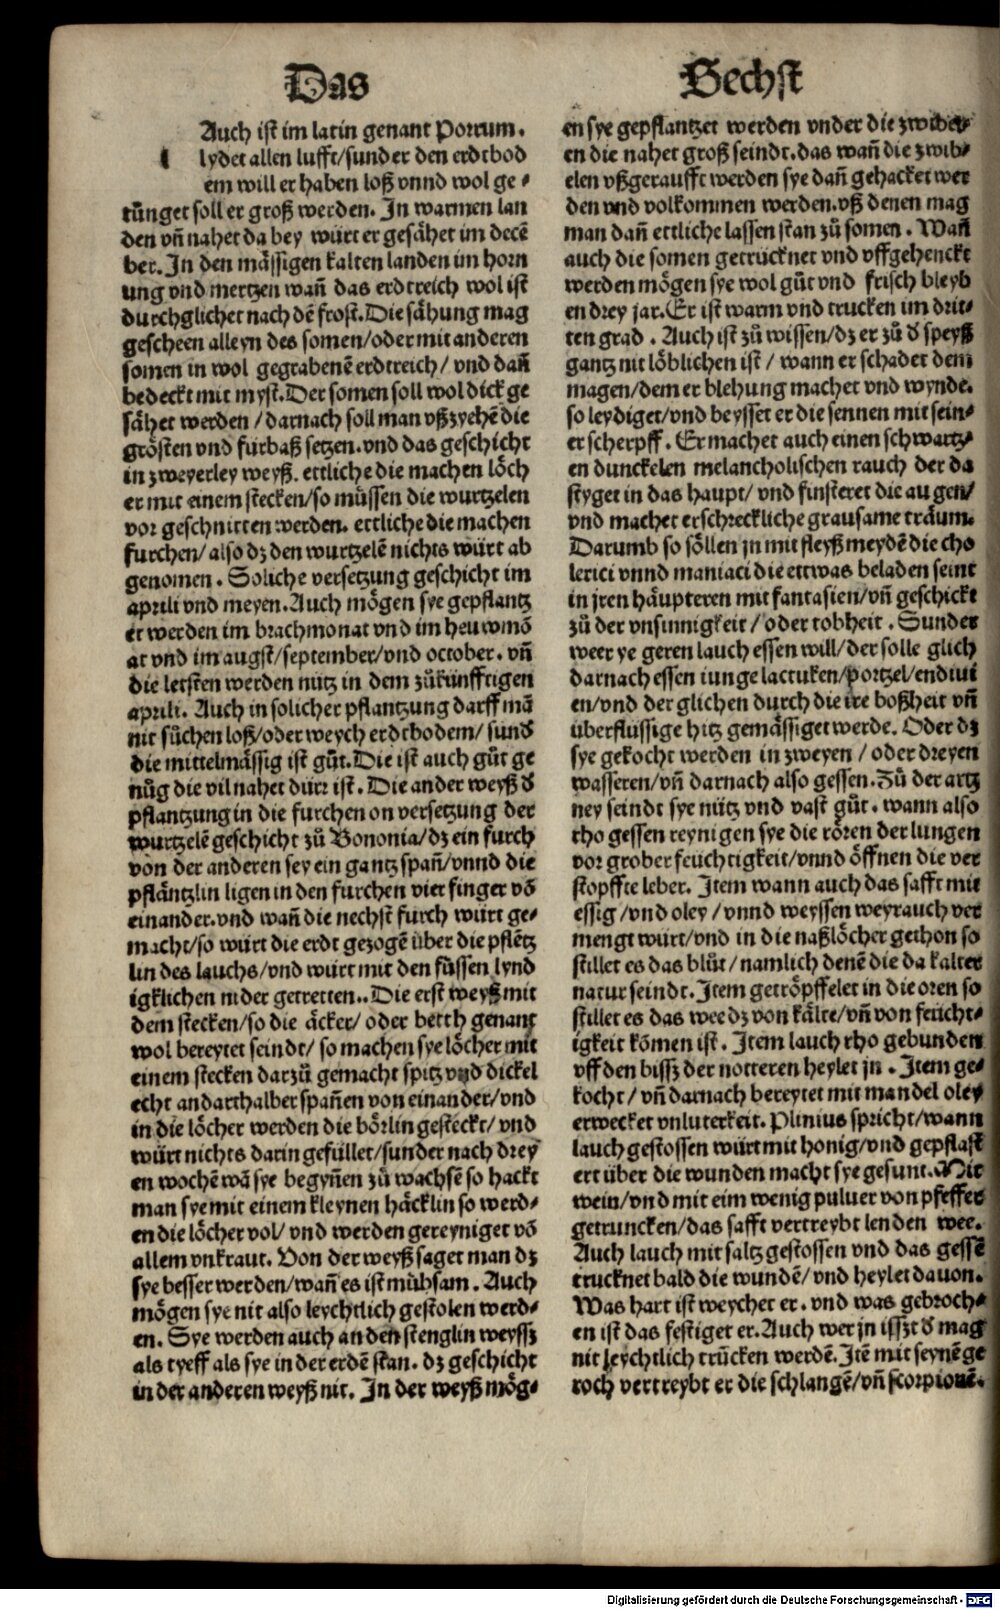 Das
Sechst
Auch ist im latin genant Porrum.
l lydet allen lufft/sunder den erdtbod
em will er haben loß vnnd wol ge⸗
tünget soll er groß werden. In warmen lan
den vñ nahet da bey würt er gesåhet im decē
ber. In den måssigen kalten landen im horn
ung vnd mertzen wañ das erdtreich wol ist
durchglichet nach dē frost. Die såhung mag
gescheen alleyn des somen/oder mit anderen
somen in wol gegrabenē erdtreich/ vnd dañ
bedeckt mit myst. Der somen soll wol dick ge
såhet werden / darnach soll man vßzyehē die
grösten vnd fürbaß setzen. vnd das geschicht
in zweyerley weyß. ettliche die machen löch
er mit einem stecken/so müssen die wurtzelen
vor geschnitten werden. ettliche die machen
furchen/ also dz den wurtzelē nichts würt ab
genomen. Soliche versetzung geschicht im
aprili vnd meyen. Auch mögen sye gepflantz
et werden im brachmonat vnd im heuwmō
at vnd im augst/september/vnd october. vñ
die letsten werden nütz in dem zůkünfftigen
aprili. Auch in solicher pflantzung darff mā
nit sůchen loß/oder weych erdtbodem/ sund̄
die mittelmåssig ist gůt. Die ist auch gůt ge
nůg die vil nahet dürr ist. Die ander weyß d̄
pflantzung in die furchen on versetzung der
wurtzelē geschicht zů Bononia/dz ein furch
von der anderen sey ein gantz spañ/vnnd die
pflåntzlin ligen in den furchen vier finger vō
einander. vnd wañ die nechst furch würt ge⸗
macht/so würt die erdt gezogē über die pflētz
lin des lauchs/vnd würt mit den füssen lynd
igklichen nider getretten.. Die erst weyß mit
dem stecken/so die åcker/ oder betth genant
wol bereytet seindt/ so machen sye löcher mit
einem stecken darzů gemacht spitz vnd dickel
echt andarthalber spañen von einander/vnd
in die löcher werden die börlin gesteckt/ vnd
würt nichts darin gefüllet/sunder nach drey
en wochē wā sye begyñen zů wachsē so hackt
man sye mit einem kleynen håcklin so werd⸗
en die löcher vol/ vnd werden gereyniget vō
allem vnkraut. Von der weyß saget man dz
sye besser werden/wañ es ist mühsam. Auch
mögen sye nit also leychtlich gestolen werd⸗
en. Sye werden auch an den stenglin weyssz
als tyeff als sye in der erdē stan. dz geschicht
in der anderen weyß nit. In der weyß mög⸗
en sye gepflantzet werden vnder die zwibel⸗
en die nahet groß seindt. das wañ die zwib⸗
elen vßgeraufft werden sye dañ gehacket wer
den vnd volkommen werden. vß denen mag
man dañ ettliche lassen stan zů somen. Wañ
auch die somen getrücknet vnd vffgehenckt
werden mögen sye wol gůt vnd frisch bleyb
en drey jar. Er ist warm vnd trucken im drit⸗
ten grad. Auch ist zů wissen/dz er zů d̄ speyß
gantz nit löblichen ist / wann er schadet dem
magen/dem er blehung machet vnd wynde.
so leydiget/vnd beysset er die sennen mit sein⸗
er scherpff. Er machet auch einen schwartz⸗
en dunckelen melancholischen rauch der da
styget in das haupt/ vnd finsteret die augen/
vnd machet erschreckliche grausame tråum.
Darumb so söllen jn mit fleyß meydē die cho
lerici vnnd maniaci die ettwas beladen seint
in jren håupteren mit fantasien/vñ geschickt
zů der vnsinnigkeit / oder tobheit. Sunder
weer ye geren lauch essen will/der solle glich
darnach essen iunge lactuken/portzel/endiui
en/vnd der glichen durch die ire boßheit vñ
überflüssige hitz gemåssiget werde. Oder dz
sye gekocht werden in zweyen / oder dreyen
wasseren/vñ darnach also gessen. Zů der artz
ney seindt sye nütz vnd vast gůt. wann also
rho gessen reynigen sye die rören der lungen
vor grober feüchtigkeit/vnnd öffnen die ver
stopffte leber. Item wann auch das safft mit
essig /vnd oley / vnnd weyssen weyrauch ver
mengt würt/vnd in die naßlöcher gethon so
stillet es das blůt/ namlich denē die da kalter
natur seindt. Item getröpffelet in die oren so
stillet es das wee dz von kålte/vñ von feücht⸗
igkeit kōmen ist. Item lauch rho gebunden
vff den bissz der notteren heylet jn. Item ge⸗
kocht / vñ darnach bereytet mit mandel oley
erwecket vnluterkeit. Plinius spricht/wann
lauch gestossen würt mit honig/vnd gepflast
ert über die wunden macht sye gesunt. Mit
wein/vnd mit eim wenig puluer von pfeffer
getruncken/das safft vertreybt lenden wee.
Auch lauch mit saltz gestossen vnd das gessē
trucknet bald die wundē/ vnd heylet dauon.
Was hart ist weychet er. vnd was gebroch⸗
en ist das festiget er. Auch wer jn isszt d̄ mag
nit leychtlich trūcken werdē. Itē mit seynē ge
roch vertreybt er die schlangē/vñ scorpionē.
Digitalisierung gefördert durch die Deutsche Forschungsgemeinschaft - DFG